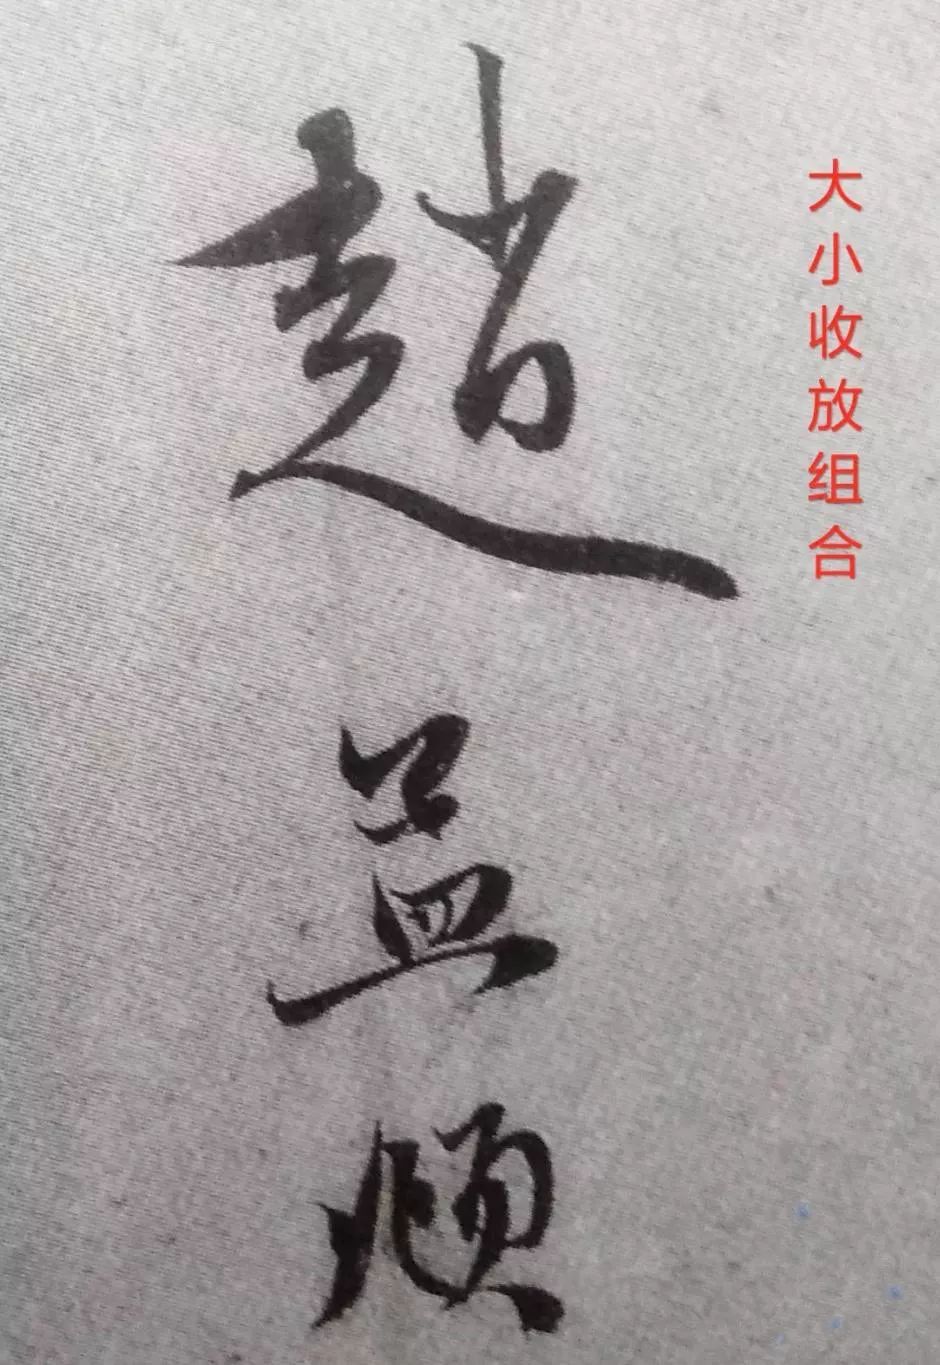 大小收放组合
趙孟頫